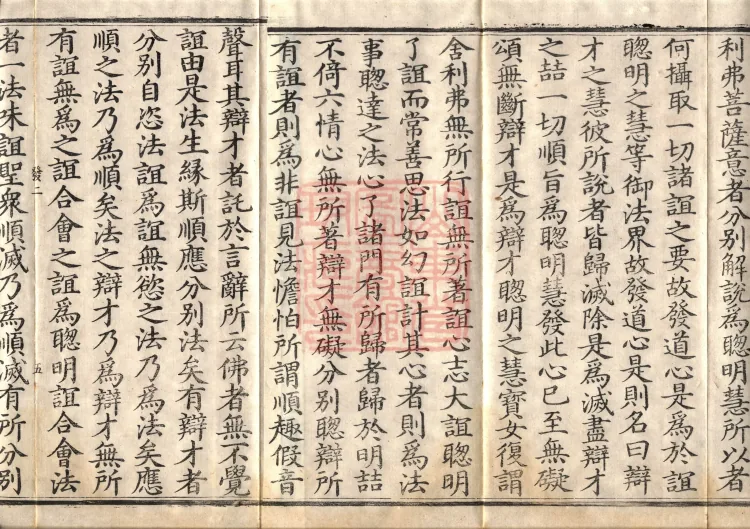 利弗菩薩意者分別解說爲聰明慧所以者
何攝取一切諸誼之要故發道心是爲於誼
聰明之慧等御法界故發道心是則名曰辯
才之慧彼所說者皆歸滅除是爲滅盡辯才
之喆一切順旨爲聰明慧發此心已至無礙
頌無斷辯才是爲辯才聰明之慧寶女復謂
舍利弗無所行誼無所著誼心志大誼聰明
了誼而常善思法如幻誼計其心者則爲法
事聰達之法心了諸門有所歸者歸於明喆
不倚六情心無所著辯才無礙分別聰辯所
有誼者則爲非誼見法憺怕所謂順趣假音
聲耳其辯才者託於言辭所云佛者無不覺
誼由是法生緣斯順應分別法矣有辯才者
分別自恣法誼爲誼無慾之法乃爲法矣應
順之法乃爲順矣法之辯才乃爲辯才無所
有誼無爲之誼合會之誼爲聰明誼合會法
發二 五
者一法味誼聖衆順滅乃爲順滅有所分別